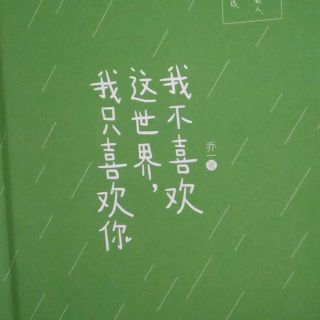 我不喜欢
这世界,
我只喜欢你
乔一